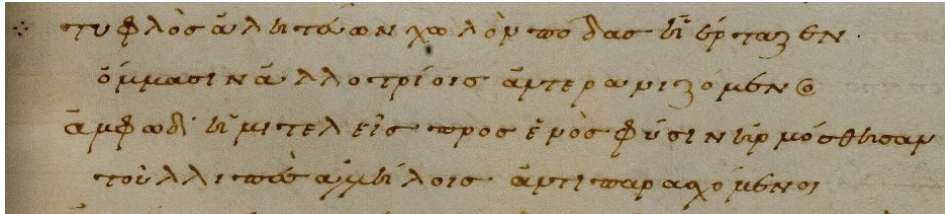 τυφλὸς ἀλητεύων χωλὸν ποδας ἠέρταζεν·
ὄμμασιν ἀλλοτρίοις ἀντερανιζόμενος
ἄμφω δ' ἡμιτελεῖς προς ἑνὸς φύσιν ἡρμόσθησαν
τοὐλλιπὲς ἀλλήλοις ἀντιπαρασχόμενοι